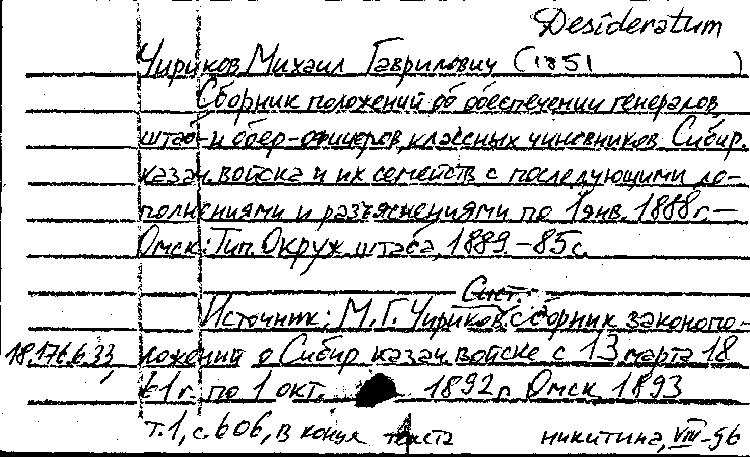 Desideratum
Чириков Михаил Гаврилович (1851 )
Сборник положений об обеспечении генералов,
штаб- и обер-офицеров, классных чиновников Сибир.
казач. войска и их семейств с последующими до-
полнениями и разъяснениями по 1 янв. 1888 г. —
Омск: Тип. Окруж. штаба, 1889. - 85 с.
Сист.
Источник: М. Г. Чириков. Сборник законопо-
18.176.6.33, ложений о Сибир. казач. войске с 13 марта 18
61 г. по 1 окт. 1892 г. Омск, 1893
т. 1, с. 606, в конце текста никитина, VIII-96